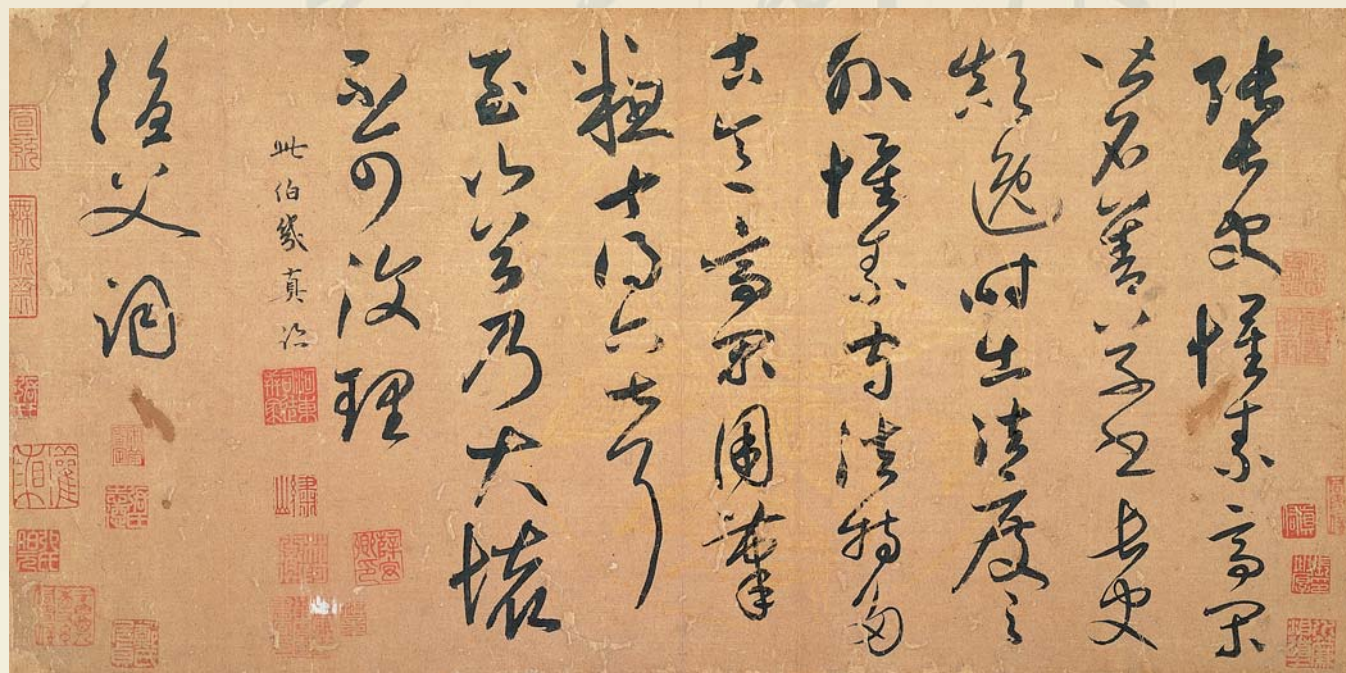 張長史懷素高閑
皆名善草書長史
顛逸時出法度之
外懷素守法特多
古意高閑用筆
粗十得六七耳
至山谷乃大壞
不可復理
此伯幾真迹
漁父詞